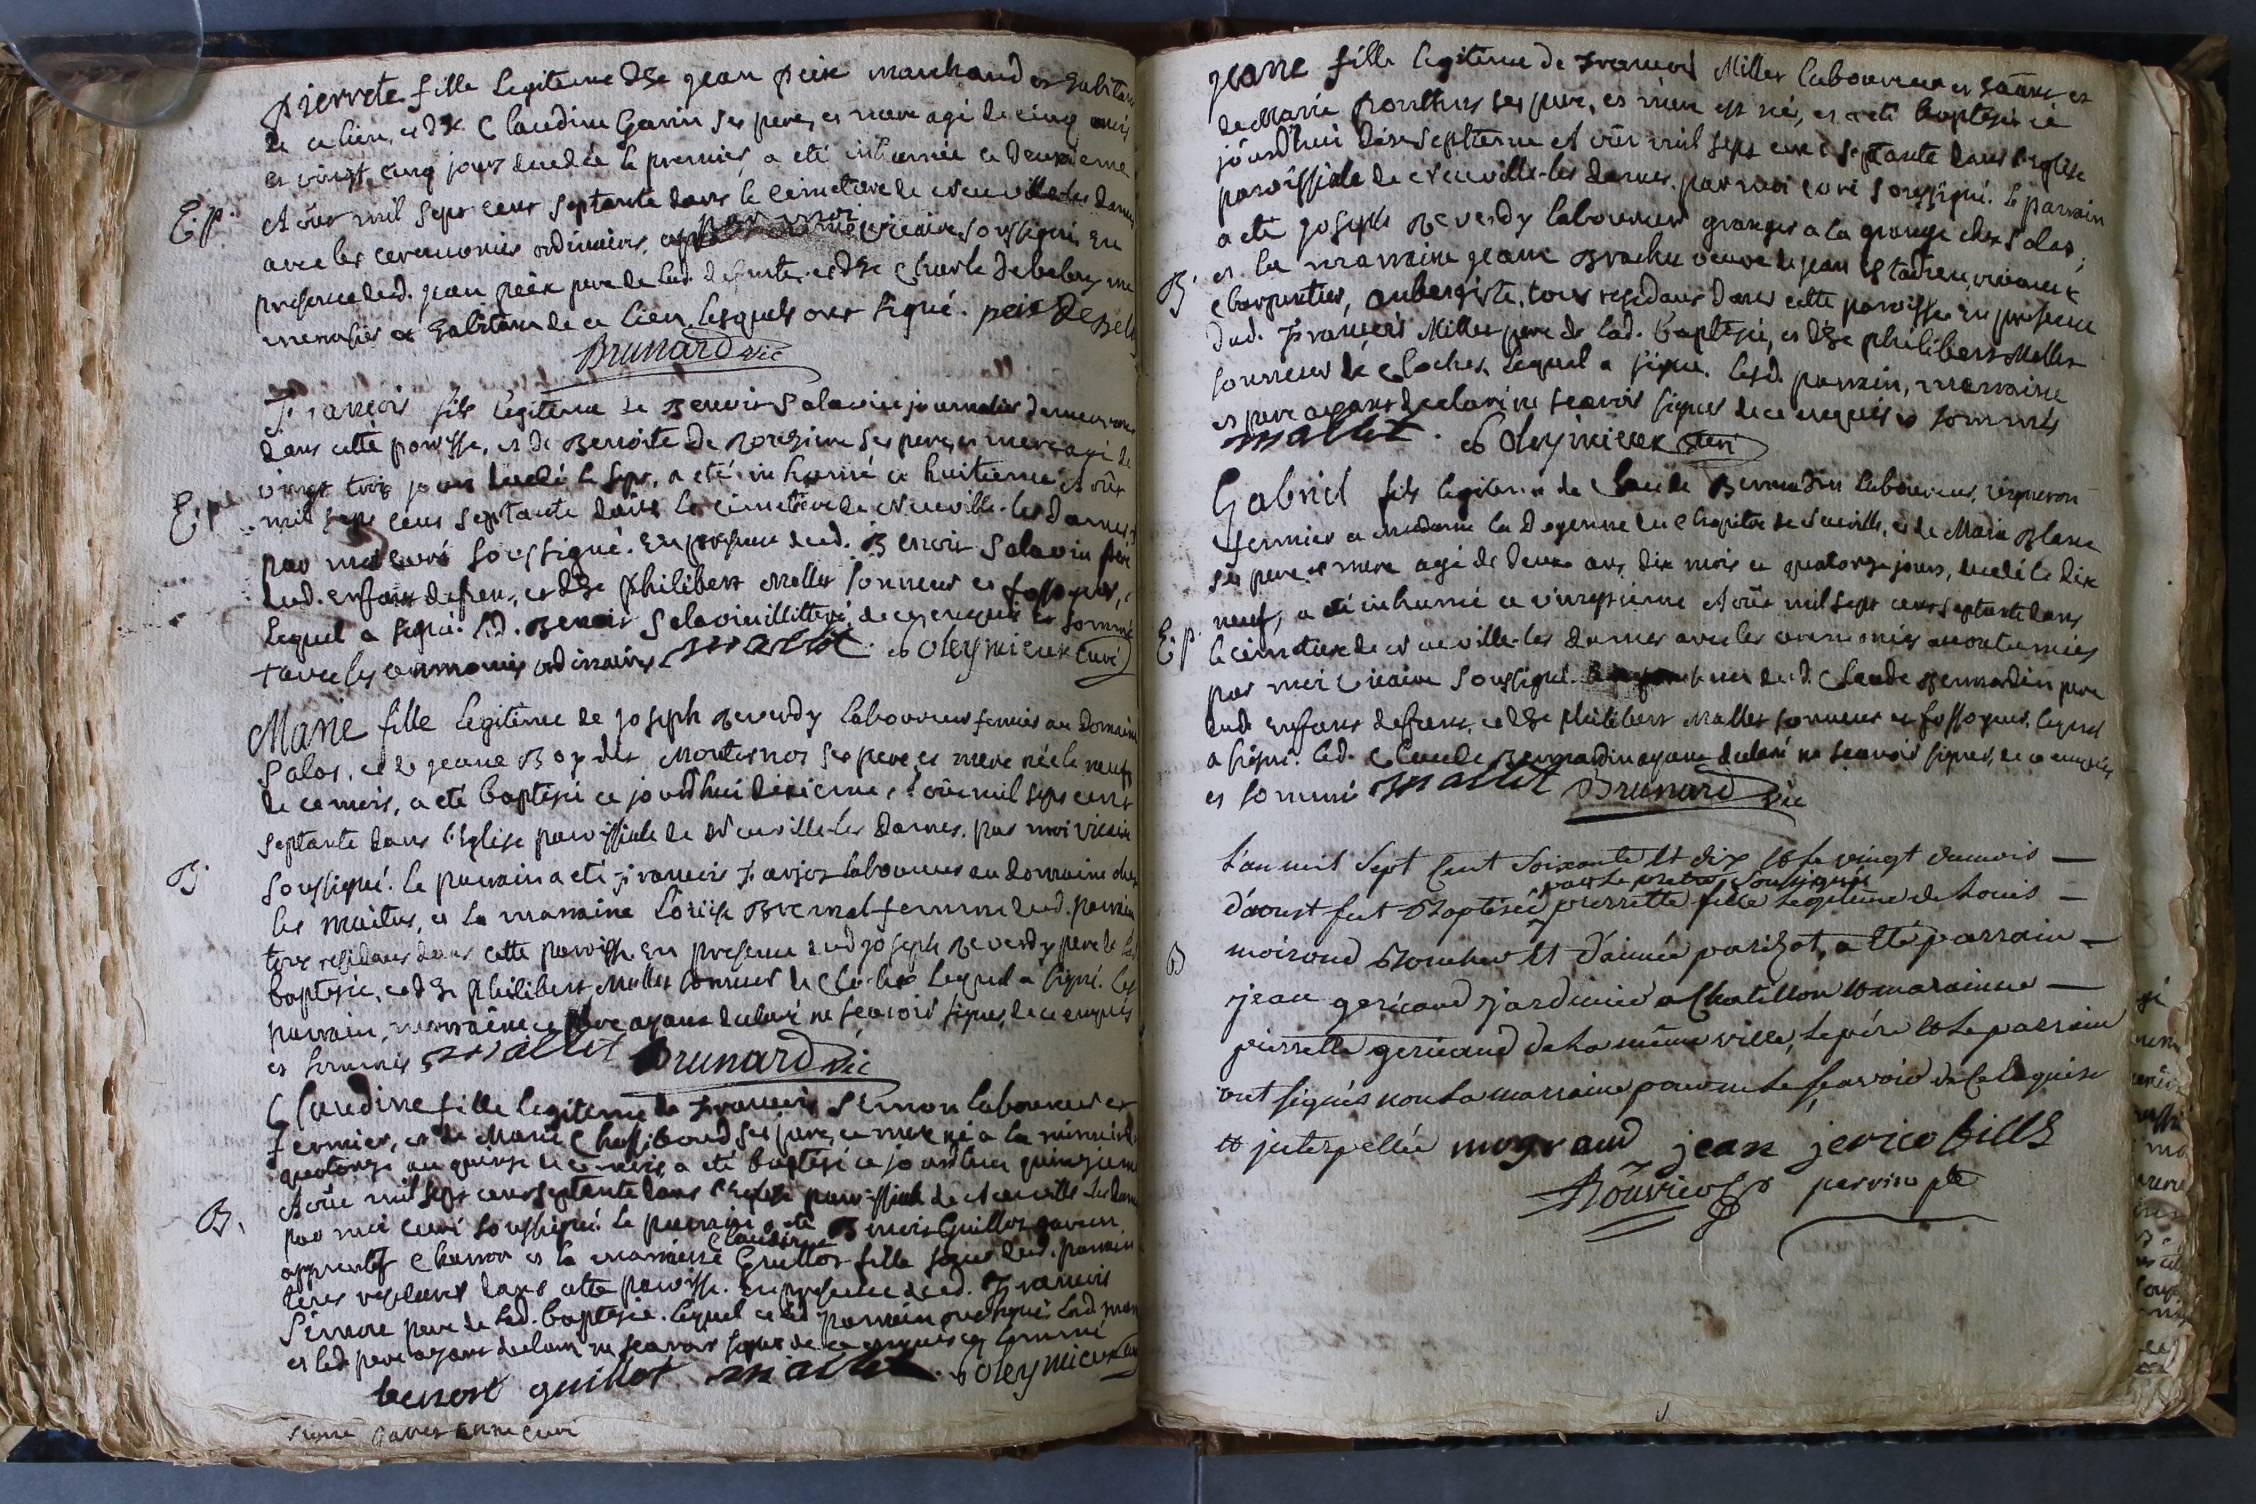 Pierrete fille legitime de Sr jean peix marchand et habitant
de ce lieu, et de Claudine Gavin ses pere, et mere agé de cinq mois
et vingt cinq jours decedée le premier, a eté inhumée ce deuxieme
Août mil sept cens septante dans le cimetiere de Neuville les dames
E. p.
avec les ceremonies ordinaires, par moi vicaire soussigné. En
presence dud. jean peix pere de lad. defunte, et de Sr Charle
menusier et habitans de ce lieu, lesquels ont signé. peix
Brunard vic
François fils legitime de Benoit Salavin journalier demeurant
dans cette paroisse, et de Benoite de ses pere, et mere agé de
vingt trois jours decedé le sept, a eté inhumé ce huitieme Août
mil sept cens septante dans le cimetiere de Neuville-les Dames +
par moi curé soussigné. En presence dud. Benoit Salavin pere
dud. enfant defunt, et de Sr Philibert Mallet sonneur et fossoyeur,
lequel a signé. l.d. Benoit Salavin illitteré de ce enquis et sommé
+ avec les ceremonies ordinaires. mallet. Soleymieux curé
Marie fille legitime de joseph Reverdy laboureur fermier au Domaine
Salos, et de jeane ses pere et mere née le neuf
de ce mois, a eté baptisée ce jourd'hui dixieme Août mil sept cens
septante dans l'Eglise paroissiale de Neuville-les Dames. par moi vicaire
B.
soussigné. le parrain a eté françois laboureur au domaine chez
les maitres, et la marraine Loüise femme dud. parrain
tous residans dans cette paroisse. En presence dud joseph Reverdy pere de lad
baptisée, et de Sr Philibert Mallet sonneur de Cloches lequel a signé. les
parrain, marraine et pere ayans declaré ne scavoir signer, de ce enquis
et sommés mallet Brunard vic
Claudine fille legitime de François Simon laboureur et
fermier, et de Marie ses pere, et mere né a la minuit du
quatorze au quinze de ce mois a eté baptisé ce jourdhui quinzieme
Août mil sept cens septante dans l'Eglise paroissiale de Neuville les dames
B.
par moi curé soussigné. le parrain a eté Benoit Guillot garçon
apprentif Charron et la marraine Claudine Guillot fille soeur dud. parrain
tous residans dans cette paroisse. En presence dud. François
Simon pere de lad. baptisée. lequel et led parrain ont signé. Lad. mar
et led. pere ayant declaré ne scavoir signer de ce enquis et sommé
benoit guillot mallet. Soleymieux curé
jeane fille legitime de François Millet laboureur et
de Marie Ponthus ses pere, et mere est né, et a eté baptisée ce
jourd'hui Août mil sept cens septante dans l'Eglise
paroissiale de Neuville-les dames. par moi curé soussigné. le parrain
a eté joseph Reverdy laboureur granger a la grange chez Salos,
et la marraine jeane Brachu veuve de jean
B.
Charpentier, aubergiste, tous residans dans cette paroisse. En presence
dud. François Millet pere de lad. baptisée, et de Sr philibert Mallet
sonneur de Cloches, lequel a signé. lesd. parrain, marraine
et pere ayans declaré ne scavoir signer de ce enquis et sommés
mallet. Soleymieux curé
Gabriel fils legitime de Claude Bernardin laboureur, vigneron
fermier a madame la Doyenne du Chapitre de Neuville, et de Marie Blanc
ses pere et mere agé de deux ans, dix mois et quatorze jours, decedé le dix
neuf, a eté inhumé ce vingtieme Août mil sept cens septante dans
E. p.
le cimetiere de Neuville-les dames avec les ceremonies accoutumées
par moi vicaire soussigné. dud. Claude Bernardin pere
dud. enfant defunt, et de Sr philibert Mallet sonneur et fossoyeur, lequel
a signé. led. Claude Bernardin ayant declaré ne scavoir signer, de ce enquis
et sommé mallet Brunard vic
L'an mil Sept Cent Soixante et dix et Le vingt du mois
par le pretre Soussigné
d'aoust fut Baptisée pierrette fille Legitime de Louis
B
moiroud Boucher et d'aimée parizot, a été parrain
jean gericaud jardinier a Chatillon et maraine
pierrette gericaud de La même ville, Le père et Le parrain
ont signés non La marraine pour ne Le sçavoir de Ce Requise
et jnterpellée moyraud jean jerico fills
perrin ptre